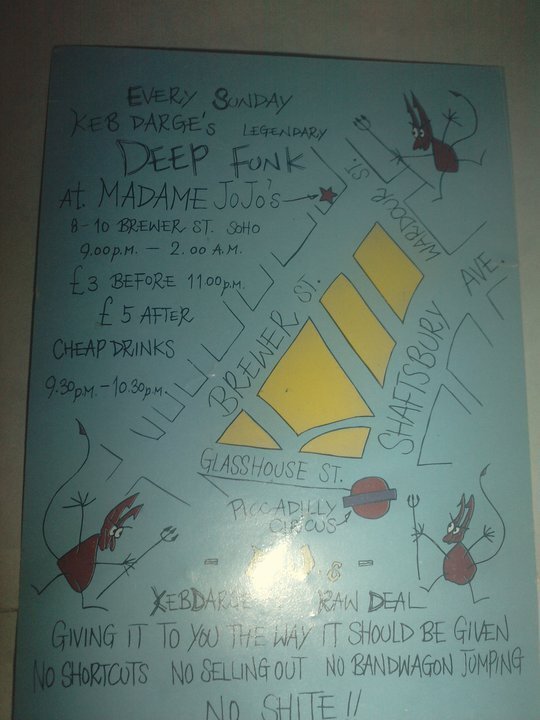 EVERY SUNDAY
KEB DARGE'S LEGENDARY
DEEP FUNK
at MADAME JoJo's
8-10 BREWER ST. SOHO
9.00 P.M. - 2.00 A.M.
£3 BEFORE 11.00 P.M.
£5 AFTER
CHEAP DRINKS
9.30 P.M. - 10.30 P.M.
WARDOUR ST.
BREWER ST.
SHAFTSBURY AVE.
GLASSHOUSE ST.
PICCADILLY
CIRCUS
KEB DARGE RAW DEAL
GIVING IT TO YOU THE WAY IT SHOULD BE GIVEN
NO SHORTCUTS NO SELLING OUT NO BANDWAGON JUMPING
NO SHITE !!